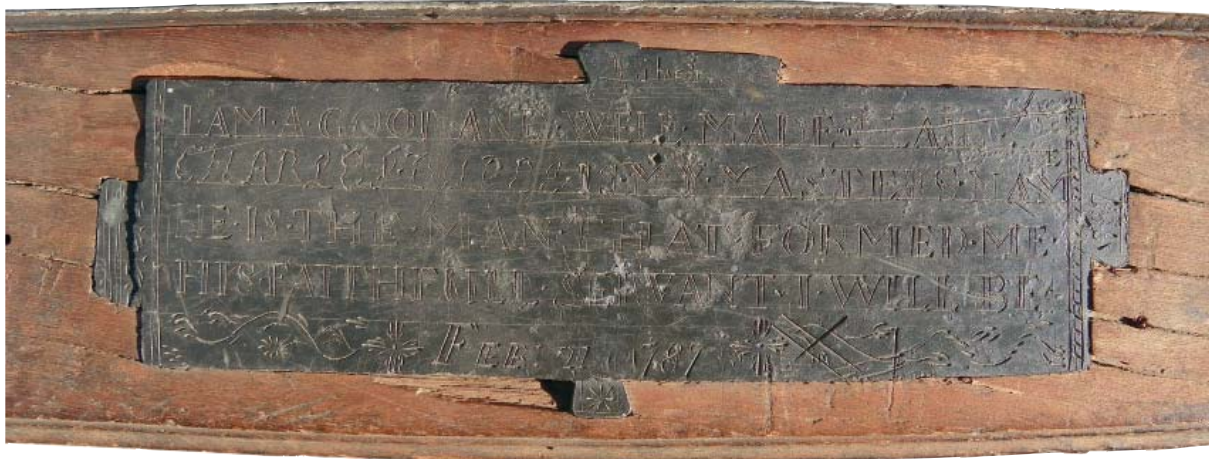 I·AM·A·GOOD AND·WELL·MADE·
CHARLES IS·MY·MASTERS·NAME
HE·IS·THE·MAN·THAT·FORMED·ME·
HIS·FAITHFULL·SERVANT·I·WILL·BE·
FEB